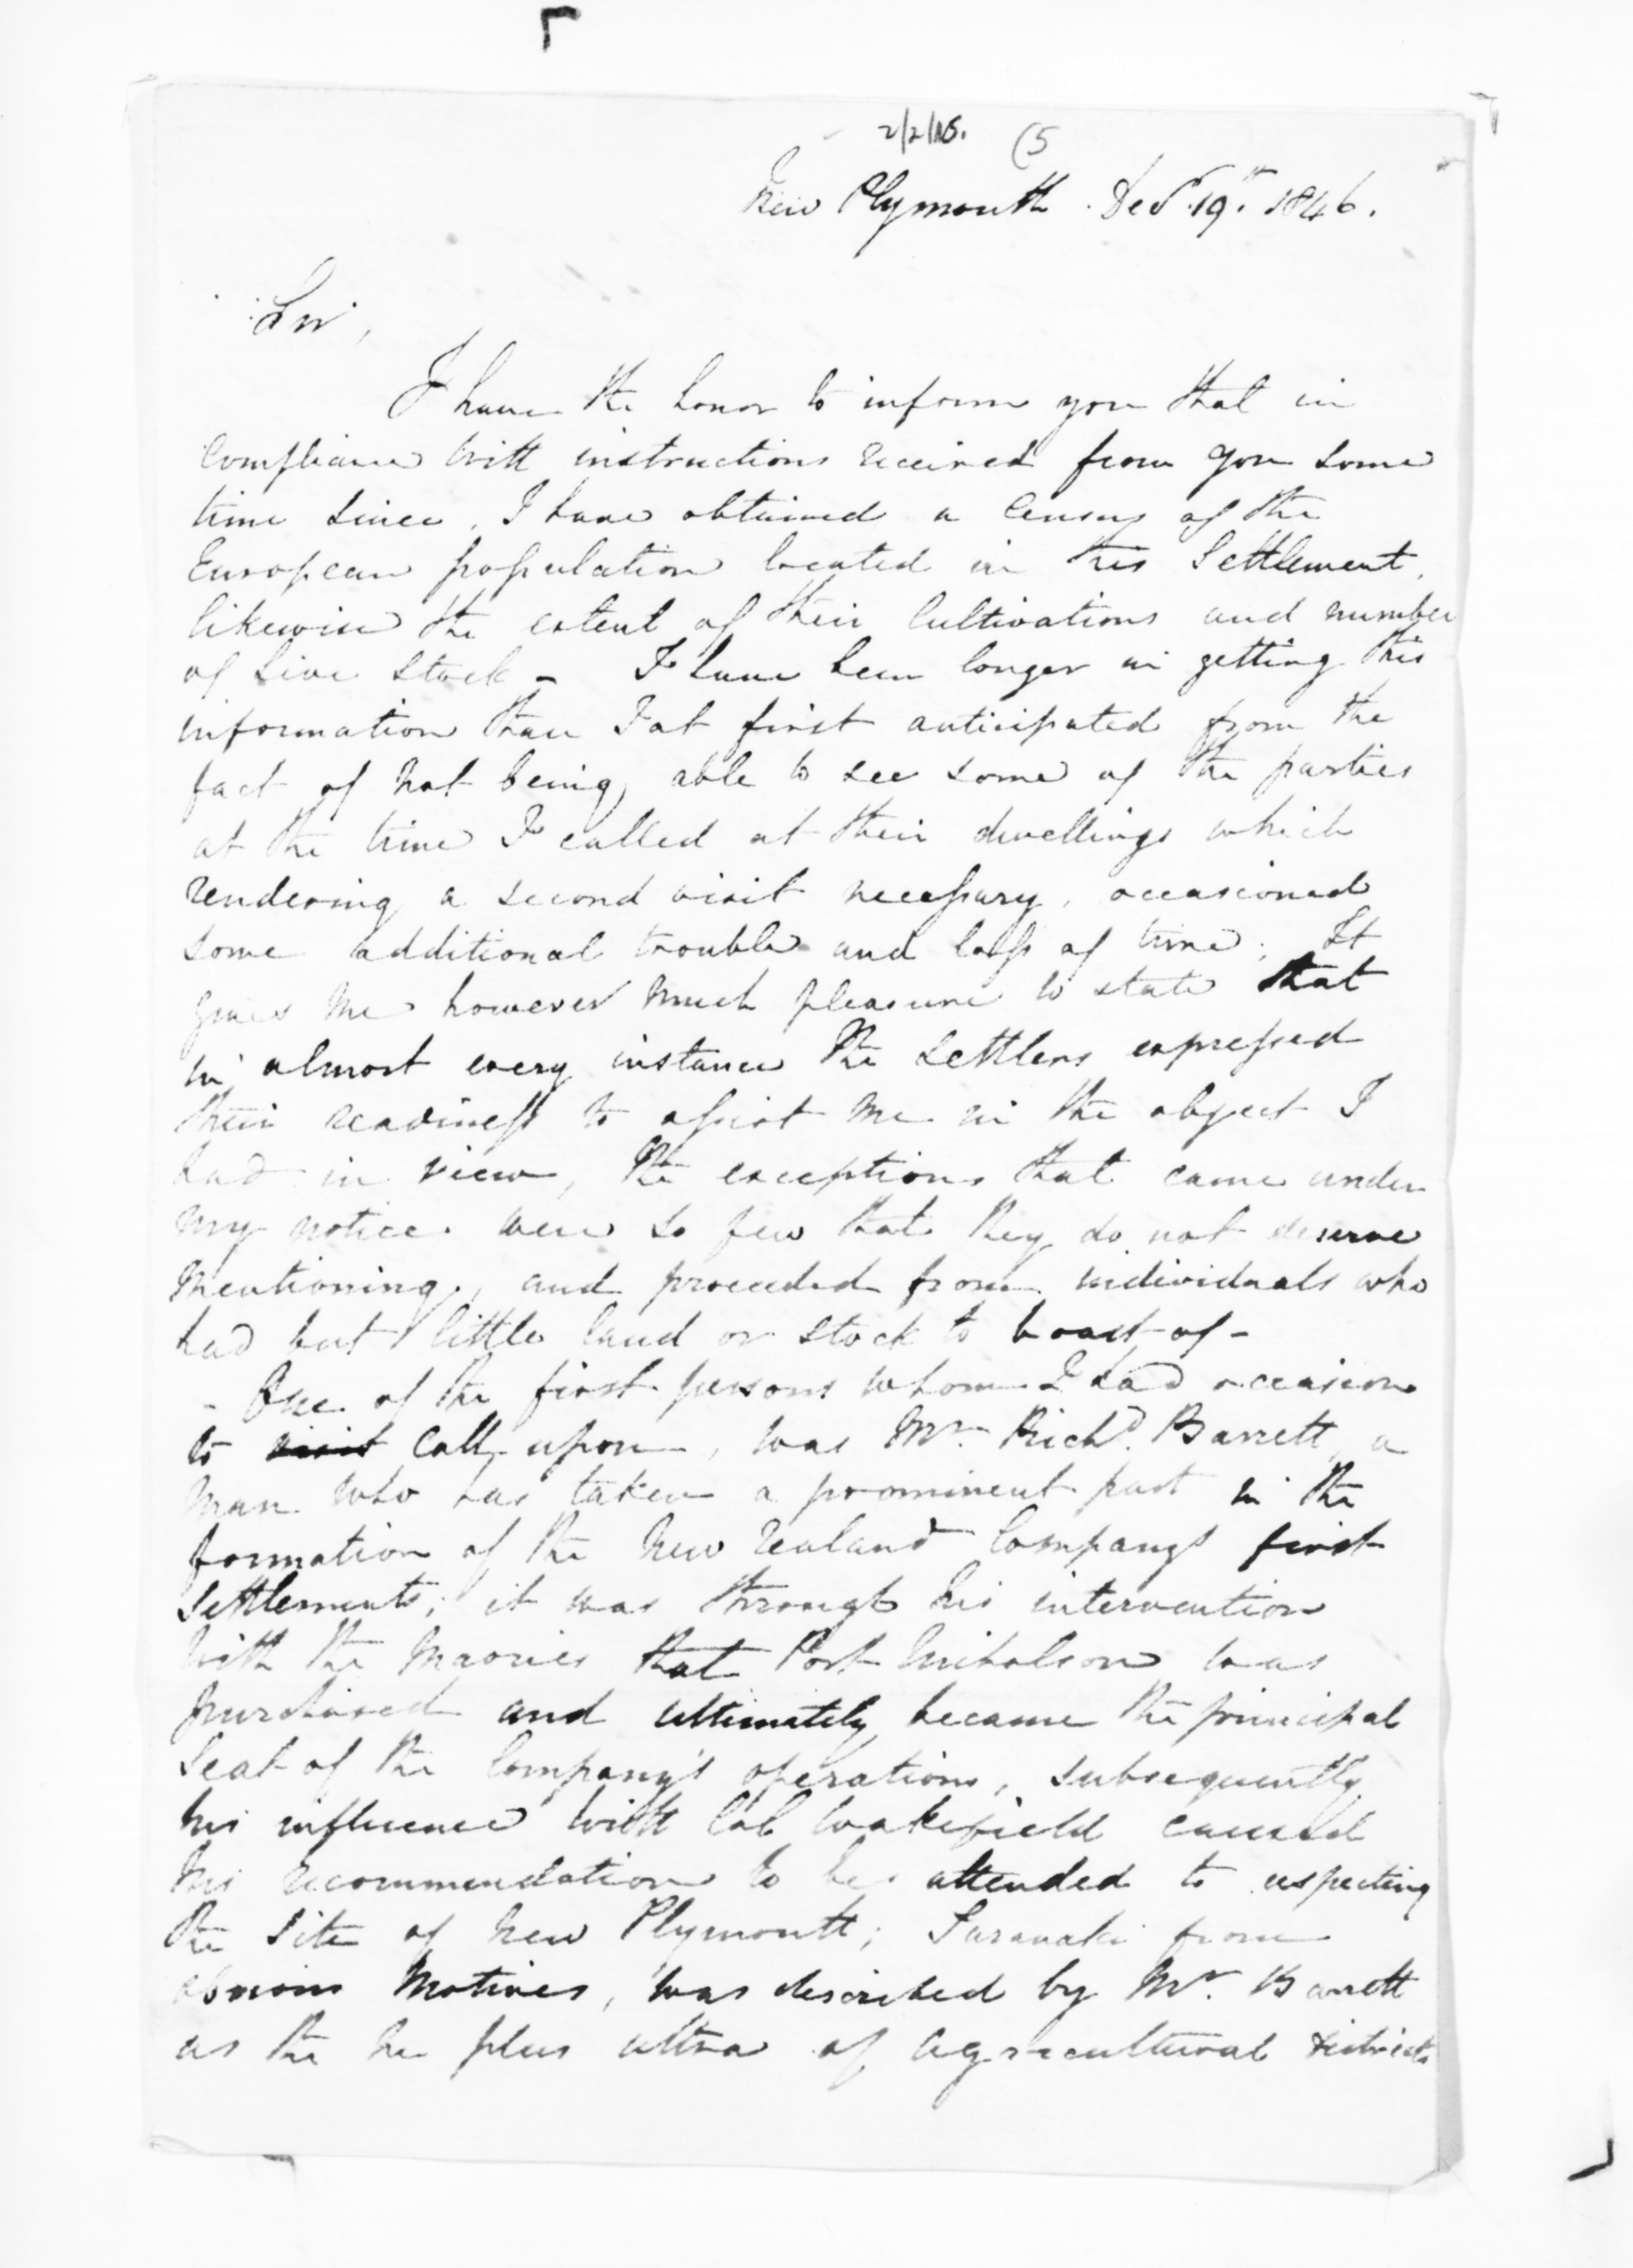 2/2/15. (5
New Plymouth. Decr. 19th 1846.
Sir,
I have the honor to inform you that in
compliance with instructions received from you some
time since, I have obtained a Census of the
European population located in this Settlement,
likewise the extent of their Cultivations and number
of Live Stock - I have been longer in getting this
information than I at first anticipated from the
fact of not being able to see some of the parties
at the time I called at their dwellings which
rendering a second visit necessary, occasioned
some additional trouble and loss of time; It
gives me however much pleasure to state that
in almost every instance the Settlers expressed
their readiness to assist me in the object I
had in view, the exceptions that came under
my notice were so few that they do not deserve
mentioning, and proceeded from individuals who
had but little land or stock to boast of -
- One of the first persons whom I had occasion
to visit call upon, was Mr. Richd. Barrett, a
man who has taken a prominent part in the
formation of the New Zealand Company's first
Settlements; it was through his intervention
with the Maories that Port Nicholson was
purchased and ultimately became the principal
Seat of the Company's operations, subsequently
his influence with Col Wakefield caused
his recommendation to be attended to respecting
the Site of New Plymouth; Taranaki from
obvious motives, was described by Mr. Barrett
as the ne plus ultra of agricultural districts